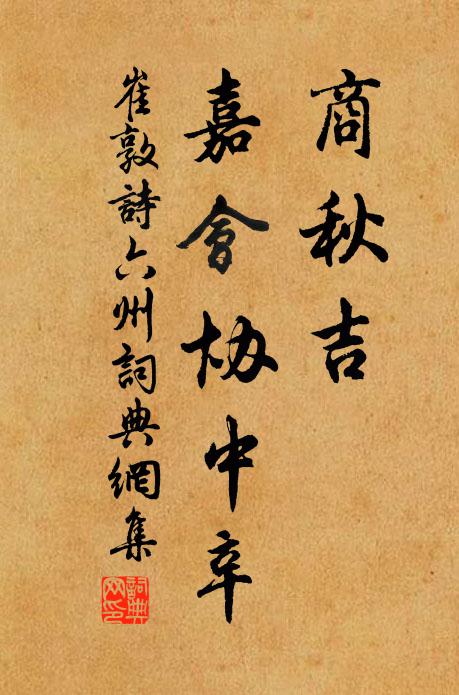 商秋吉
嘉會協中辛
崔敦詩六州詞典網集
詞典
网印